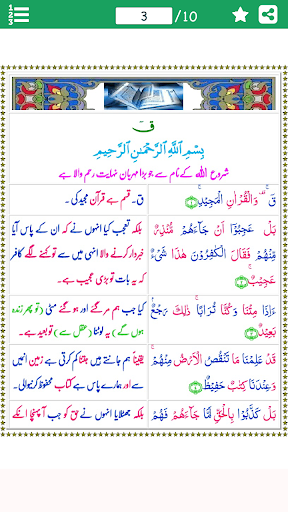 1
2
3
3 /10
قٓ
بِسْمِ اللّٰهِ الرَّحْمٰنِ الرَّحِيْمِ
شروع اللّٰہ کے نام سے جو بڑا مہربان نہایت رحم والا ہے
قٓ ۚ وَالْقُرْاٰنِ الْمَجِيْدِ ۚ
ق۔ قسم ہے قرآن مجید کی۔
بَلْ عَجِبُوْٓا اَنْ جَآءَهُمْ مُّنْذِرٌ
مِّنْهُمْ فَقَالَ الْكٰفِرُوْنَ هٰذَا شَيْءٌ
عَجِيْبٌ ۚ
بلکہ تعجب کیا انہوں نے کہ ان کے پاس آیا
خبردار کرنے والا انہی میں سے تو کہنے لگے کافر
کہ یہ بات تو بڑی عجیب ہے۔
ءَاِذَا مِتْنَا وَكُنَّا تُرَابًا ۚ ذٰلِكَ رَجْعٌۢ
بَعِيْدٌ
کیا جب ہم مر گئے اور ہو گئے مٹی (تو پھر زندہ
ہوں گے) یہ لوٹنا (عقل سے) تو بعید ہے۔
قَدْ عَلِمْنَا مَا تَنْقُصُ الْاَرْضُ مِنْهُمْ ۚ
وَعِنْدَنَا كِتٰبٌ حَفِيْظٌ
یقیناً ہم جانتے ہیں جتنا کم کرتی ہے زمین انہیں
سے اور ہمارے پاس ہے کتاب محفوظ کرنیوالی۔
بَلْ كَذَّبُوْا بِالْحَقِّ لَمَّا جَآءَهُمْ فَهُمْ
بلکہ جھٹلایا انہوں نے حق کو جب آ پہنچا انکے